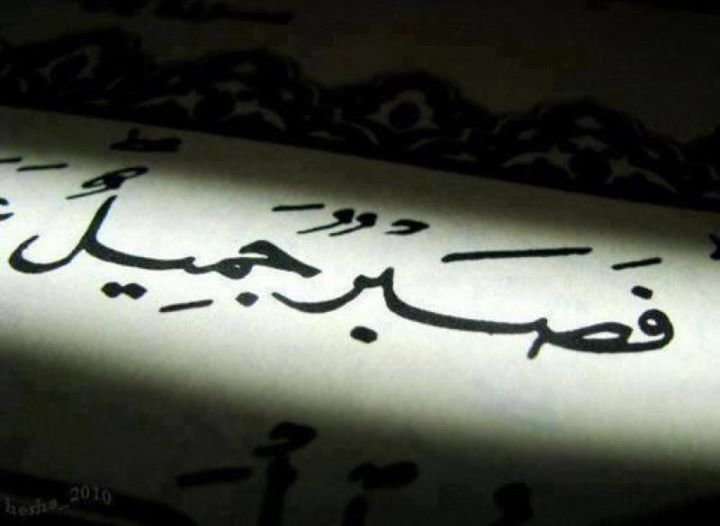 فَصَبْرٌ جَمِيلٌ ۖ
hesha_2010